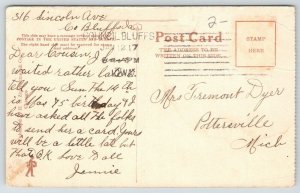 316 Lincoln Ave
Co Bluffs Ia
Dear Cousin I
waited rather late to
tell you Sun the 14 th
is Mas 75 birthday &
have asked all the folks
to send her a card. Yours
will be a little late but
that OK Love to all
Jennie
COUNCIL BLUFFS
IOWA
Post Card
THE ADDRESS TO BE
WRITTEN ON THIS SIDE
STAMP
HERE
2
Mrs Tremont Dyer
Potterville
Mich